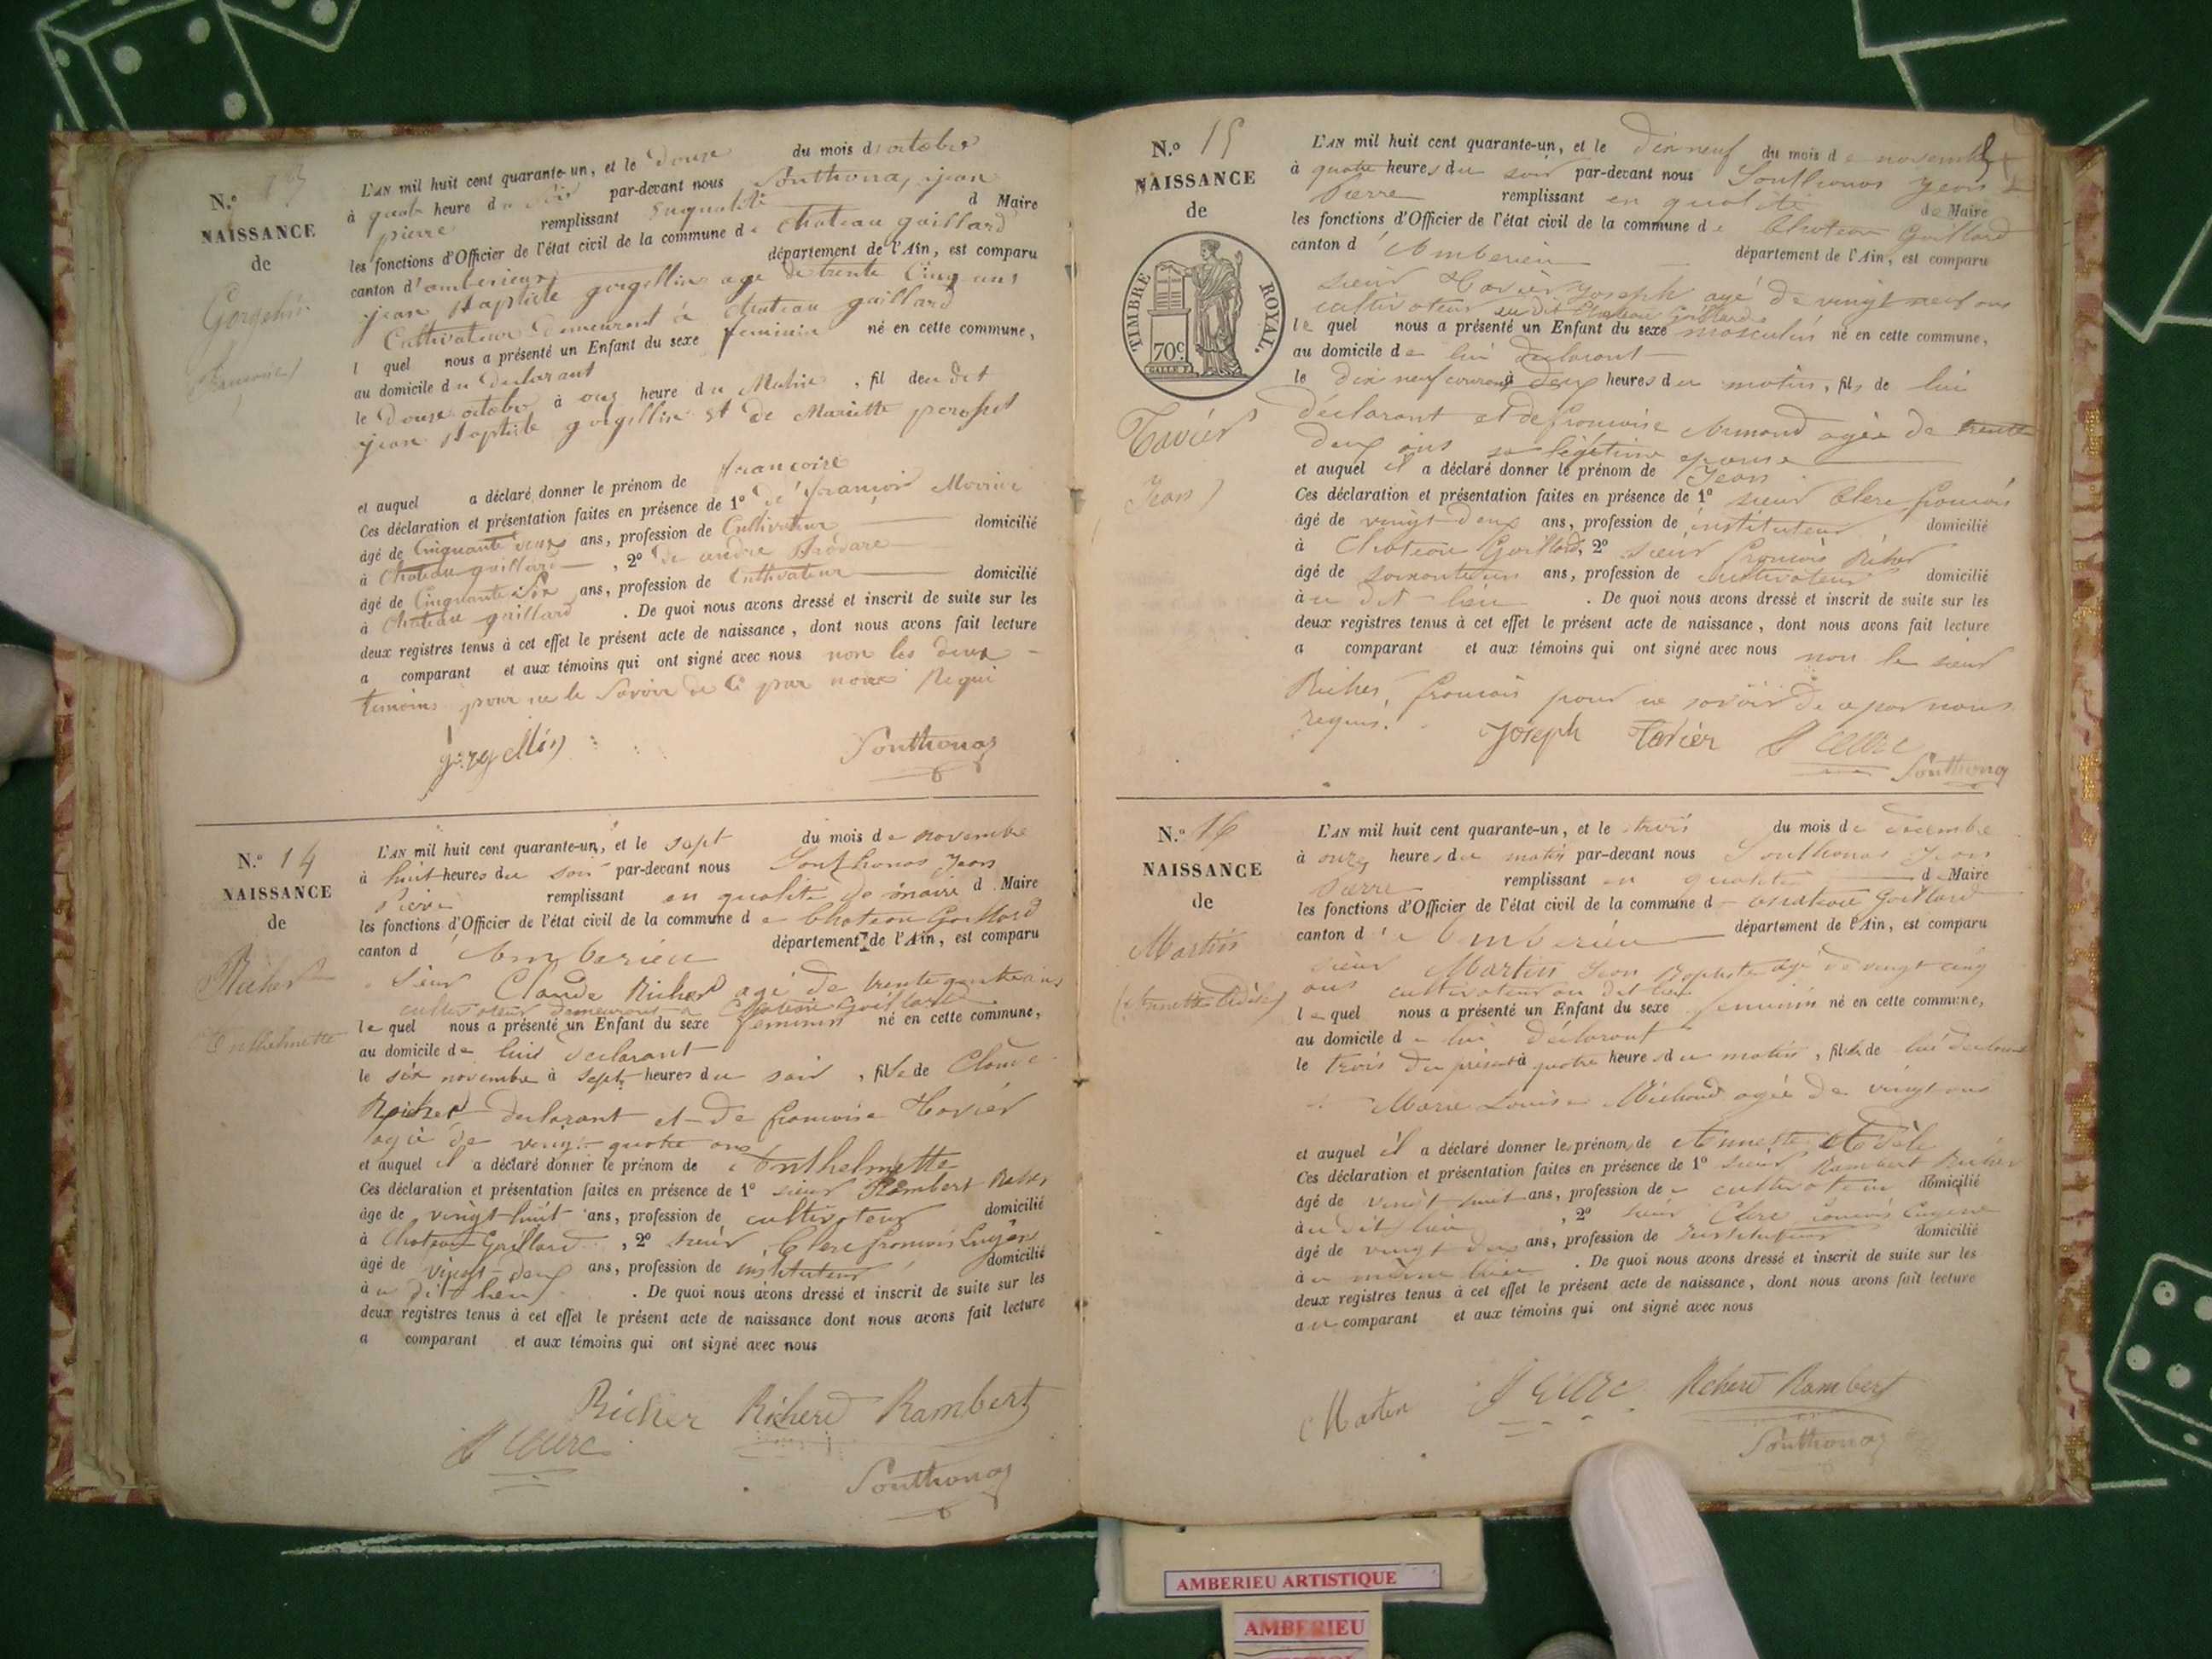 N.º 13
NAISSANCE
de
Gorgellin
françoise
L'AN mil huit cent quarante-un, et le Douze du mois d'octobre
à quatre heure du soir par-devant nous Southonax, jean
pierre remplissant En qualité d Maire
les fonctions d'Officier de l'état civil de la commune de Chateau gaillard
canton d'amberieux département de l'Ain, est comparu
jean Baptiste gorgellin age de trente Cinq ans
Cultivateur Demeurant à Chateau gaillard
l quel nous a présenté un Enfant du sexe feminin né en cette commune,
au domicile du Declarant
le Douze octobre à onz heure du Matin, fil deu dit
jean Baptiste gorgellin et de Mariette
et auquel a déclaré donner le prénom de françoise
Ces déclaration et présentation faites en présence de 1º de françois
âgé de Cinquante ans, profession de Cultivateur domicilié
à Chateau gaillard, 2º de andre
âgé de Cinquante Six ans, profession de Cultivateur domicilié
à Chateau gaillard. De quoi nous avons dressé et inscrit de suite sur les
deux registres tenus à cet effet le présent acte de naissance, dont nous avons fait lecture
a comparant et aux témoins qui ont signé avec nous non les deux
temoins pour ne le Savoir de Ce par nous Requi
gorgellin Southonax
N.º 14
NAISSANCE
de
Richerd
Anthelmette
L'AN mil huit cent quarante-un, et le sept du mois de novembre
à huit heures du soir par-devant nous Southonax Jean
Pierre remplissant en qualité de maire d Maire
les fonctions d'Officier de l'état civil de la commune de Chateau Gaillard
canton d'Amberieu département de l'Ain, est comparu
Sieur Claude Richerd agé de trente quatre ans
cultivateur demeurant a Chateau Gaillard
le quel nous a présenté un Enfant du sexe féminin né en cette commune,
au domicile de lui déclarant
le six novembre à sept heures du soir, fille de Claude
Richerd declarant et de françoise Tavier
agée de vingt quatre ans
et auquel il a déclaré donner le prénom de Anthelmette
Ces déclaration et présentation faites en présence de 1º sieur Rambert Richer
âge de vingt huit ans, profession de cultivateur domicilié
à Chateau Gaillard, 2º sieur Clerc françois Eugène
âgé de vingt-deux ans, profession de instituteur domicilié
au dit lieu. De quoi nous avons dressé et inscrit de suite sur les
deux registres tenus à cet effet le présent acte de naissance dont nous avons fait lecture
a comparant et aux témoins qui ont signé avec nous
Richer Richerd Rambert
Clerc
Southonax
N.º 15
NAISSANCE
de
TIMBRE ROYAL.
70c
Tavier
(Jean)
L'AN mil huit cent quarante-un, et le dix neuf du mois de novembre
à quatre heures du soir par-devant nous Southonax Jean
Pierre remplissant en qualité de Maire
les fonctions d'Officier de l'état civil de la commune de Chateau Gaillard
canton d'Amberieu département de l'Ain, est comparu
sieur Tavier Joseph agé de vingt neuf ans
cultivateur au dit Chateau Gaillard
le quel nous a présenté un Enfant du sexe masculin né en cette commune,
au domicile de lui déclarant
le dix neuf courant à deux heures du matin, fils de lui
déclarant et de françoise Armand agée de trente
deux ans sa légitime epouse
et auquel il a déclaré donner le prénom de Jean
Ces déclaration et présentation faites en présence de 1º sieur Clerc françois
âgé de vingt-deux ans, profession de instituteur domicilié
à Chateau Gaillard, 2º sieur françois Richer
âgé de soixante un ans, profession de cultivateur domicilié
àu dit lieu. De quoi nous avons dressé et inscrit de suite sur les
deux registres tenus à cet effet le présent acte de naissance, dont nous avons fait lecture
a comparant et aux témoins qui ont signé avec nous non le sieur
Richer françois pour ne savoir de ce par nous
requis.
Joseph Tavier Clerc
Southonax
N.º 16
NAISSANCE
de
Martin
(Annette Adèle)
L'AN mil huit cent quarante-un, et le trois du mois de decembre
à onze heures du matin par-devant nous Southonax Jean
Pierre remplissant en qualité de Maire
les fonctions d'Officier de l'état civil de la commune d Chateau Gaillard
canton d'Amberieu département de l'Ain, est comparu
sieur Martin Jean Baptiste agé de vingt cinq
ans cultivateur au dit lieu
le quel nous a présenté un Enfant du sexe feminin né en cette commune,
au domicile de lui déclarant
le trois du présent à quatre heures du matin, fille de lui declarant
et Marie Louise Michoud agée de vingt ans
et auquel il a déclaré donner le prénom de Annette Adèle
Ces déclaration et présentation faites en présence de 1º sieur Rambert Richer
âgé de vingt huit ans, profession de cultivateur domicilié
àu dit lieu, 2º sieur Clerc françois Eugene
âgé de vingt deux ans, profession de instituteur domicilié
àu même lieu. De quoi nous avons dressé et inscrit de suite sur les
deux registres tenus à cet effet le présent acte de naissance, dont nous avons fait lecture
au comparant et aux témoins qui ont signé avec nous
Martin Clerc Richerd Rambert
Southonax
AMBERIEU ARTISTIQUE
AMBERIEU